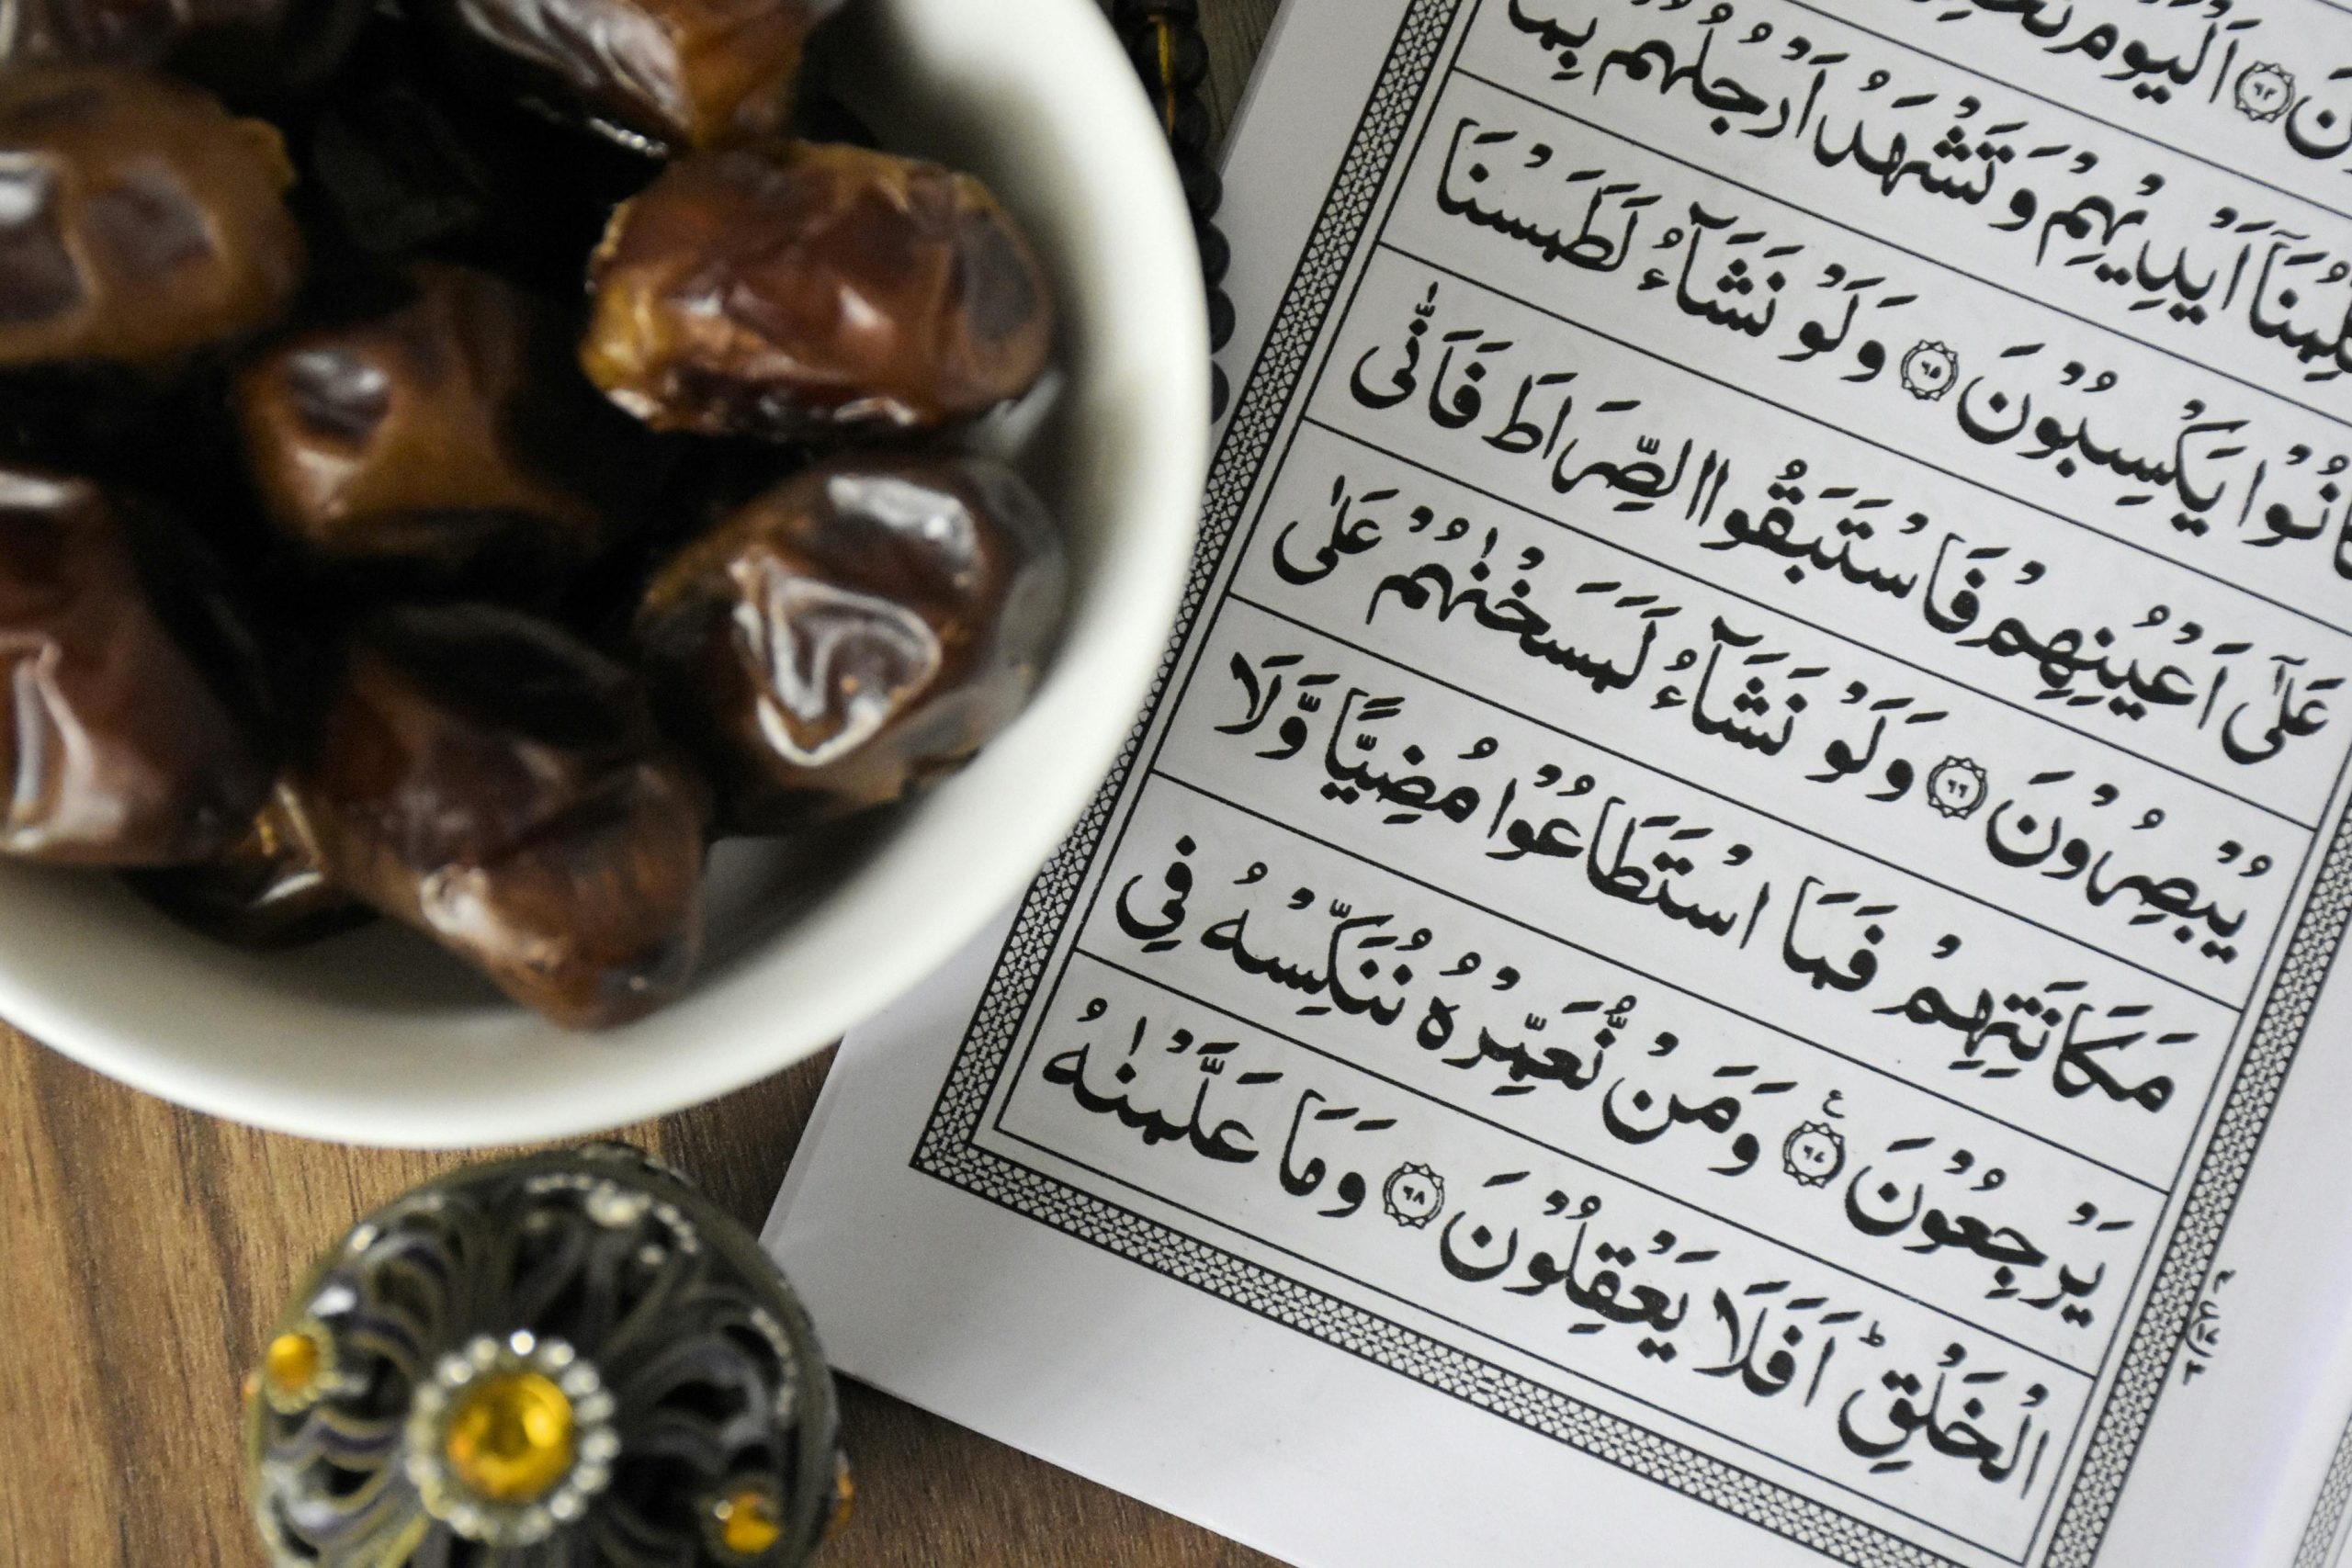 نَ ﴿٦٤﴾ اَلْيَوْمَ
لِّمُنَاۤ اَيْدِيْهِمْ وَتَشْهَدُ اَرْجُلُهُمْ بِمَا
كَانُوْا يَكْسِبُوْنَ ﴿٦٥﴾ وَلَوْ نَشَآءُ لَطَمَسْنَا
عَلٰٓى اَعْيُنِهِمْ فَاسْتَبَقُوا الصِّرَاطَ فَاَنّٰى
يُبْصِرُوْنَ ﴿٦٦﴾ وَلَوْ نَشَآءُ لَمَسَخْنٰهُمْ عَلٰى
مَكَانَتِهِمْ فَمَا اسْتَطَاعُوْا مُضِيًّا وَّلَا
يَرْجِعُوْنَ ﴿٦٧﴾ ع وَمَنْ نُّعَمِّرْهُ نُنَكِّسْهُ فِى
الْخَلْقِؕ اَفَلَا يَعْقِلُوْنَ ﴿٦٨﴾ وَمَا عَلَّمْنٰهُ